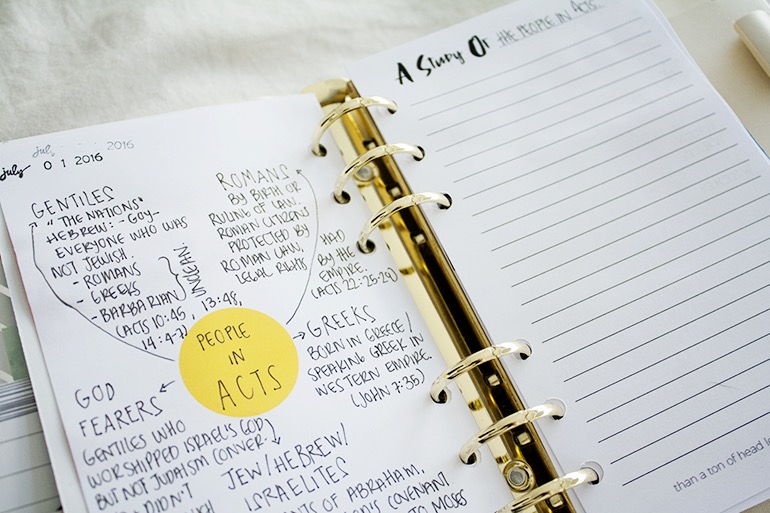 july 2016
july 0 1 2016
GENTILES
"THE NATIONS"
HEBREW: -GOY-
EVERYONE WHO WAS
NOT JEWISH.
- ROMANS
- GREEKS
- BARBARIAN
UNCLEAN!
(ACTS 10:45, 13:48,
ROMANS
BY BIRTH OR
RULING OF LAW.
ROMAN CITIZENS
PROTECTED BY
ROMAN LAW.
LEGAL RIGHTS
HAD
BY THE
EMPIRE.
(ACTS 22:25-29)
PEOPLE
IN
ACTS
GREEKS
BORN IN GREECE/
SPEAKING GREEK IN
WESTERN EMPIRE.
(JOHN 7:35)
GOD
FEARERS
GENTILES WHO
WORSHIPPED ISRAEL'S GOD
BUT NOT JUDAISM (CONVER-
DIDN'T
JEW/HEBREW/
ISRAELITES
OF ABRAHAM,
COVENANT
TO MOSES
A STUDY OF THE PEOPLE IN ACTS
than a ton of head